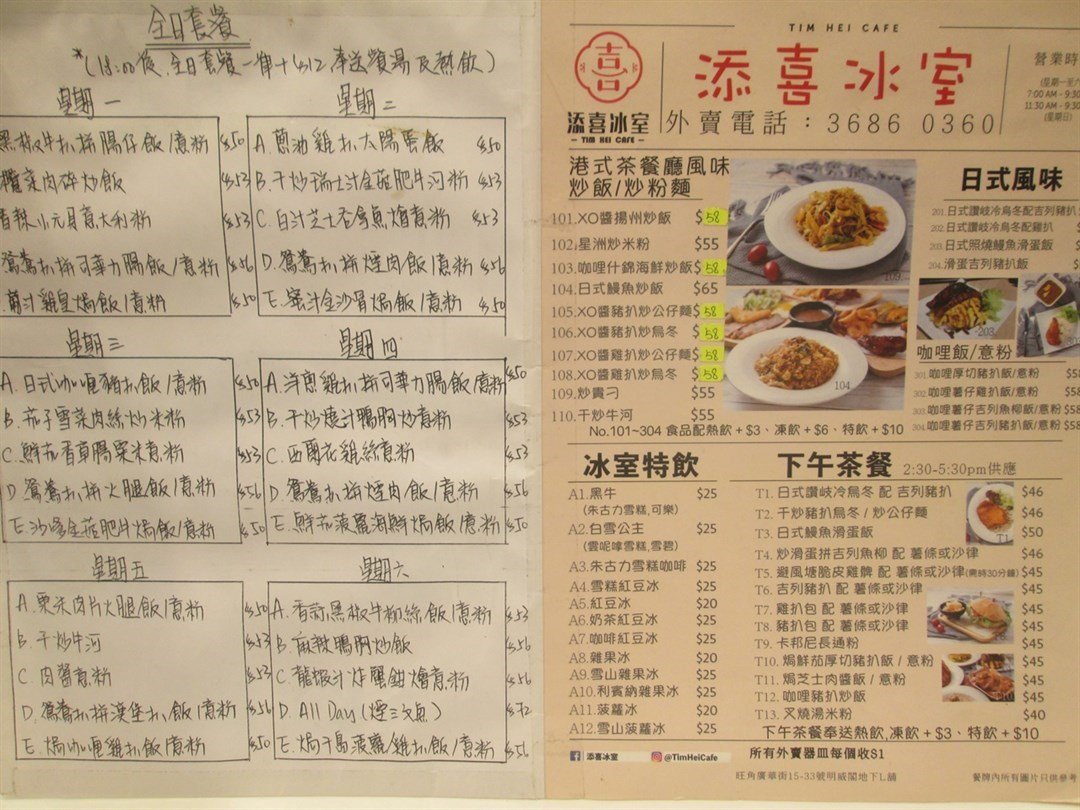 全日套餐
*(18:00後,全日套餐一律+$12,奉送餐湯及熱飲)
星期一
黑椒牛扒拼腸仔飯/意粉 $50
欖菜肉碎炒飯 $53
香辣小元貝意大利粉 $53
鴛鴦扒拼可華力腸飯/意粉 $56
葡汁雞皇焗飯/意粉 $50
星期二
A. 蔥油雞扒大腸蛋飯 $50
B. 干炒瑞士汁金菇肥牛河粉 $53
C. 白汁芝士吞拿魚燴意粉 $53
D. 鴛鴦扒拼煙肉飯/意粉 $56
E. 蜜汁金沙骨焗飯/意粉 $50
星期三
A. 日式咖喱豬扒飯/意粉 $50
B. 茄子雪菜肉絲炒米粉 $53
C. 鮮茄香草腸粟米意粉 $53
D. 鴛鴦扒拼火腿飯/意粉 $56
E. 沙嗲金菇肥牛焗飯/意粉 $50
星期四
A. 洋蔥雞扒拼可華力腸飯/意粉 $50
B. 干炒燒汁鴨胸炒意粉 $53
C. 西蘭花雞絲意粉 $53
D. 鴛鴦扒拼煙肉/飯/意粉 $56
E. 鮮茄菠蘿海鮮焗飯/意粉 $50
星期五
A. 粟米肉片火腿飯/意粉 $50
B. 干炒牛河 $53
C. 肉醬意粉 $53
D. 鴛鴦扒拼漢堡扒/飯/意粉 $56
E. 焗咖喱雞扒飯/意粉 $50
星期六
A. 香蒜黑椒牛柳絲飯/意粉 $53
B. 麻辣鴨胸炒飯 $56
C. 龍蝦汁炸蟹鉗燴意粉 $56
D. All Day (煙三文魚) $72
E. 焗千島菠蘿雞扒飯/意粉 $56
TIM HEI CAFE
添喜冰室
添喜冰室
TIM HEI CAFE
外賣電話:3686 0360
營業時
(星期一至六
7:00 AM - 9:30
11:30 AM - 9:30
(星期日)
港式茶餐廳風味
炒飯/炒粉麵
101.XO醬揚州炒飯 $58
102.星洲炒米粉 $55
103.咖哩什錦海鮮炒飯 $58
104.日式鰻魚炒飯 $65
105.XO醬豬扒炒公仔麵 $58
106.XO醬豬扒炒烏冬 $58
107.XO醬雞扒炒公仔麵 $58
108.XO醬雞扒炒烏冬 $58
109.炒貴刁 $55
110.干炒牛河 $55
109
104
日式風味
201.日式讚岐冷烏冬配吉列豬扒
202.日式讚岐冷烏冬配雞扒
203.日式照燒鰻魚滑蛋飯
204.滑蛋吉列豬扒飯
203
咖哩飯/意粉
301.咖哩厚切豬扒飯/意粉 $58
302.咖哩薯仔雞扒飯/意粉 $58
303.咖哩薯仔吉列魚柳飯/意粉 $58
304.咖哩薯仔吉列豬扒飯/意粉 $58
No.101~304 食品配熱飲+$3、凍飲+$6、特飲+$10
冰室特飲
A1.黑牛 $25
(朱古力雪糕,可樂)
A2.白雪公主 $25
(雲呢嗱雪糕,雪碧)
A3.朱古力雪糕咖啡 $25
A4.雪糕紅豆冰 $25
A5.紅豆冰 $20
A6.奶茶紅豆冰 $25
A7.咖啡紅豆冰 $25
A8.雜果冰 $20
A9.雪山雜果冰 $25
A10.利賓納雜果冰 $25
A11.菠蘿冰 $20
A12.雪山菠蘿冰 $25
下午茶餐 2:30-5:30pm供應
T1.日式讚岐冷烏冬 配 吉列豬扒 $46
T2.干炒豬扒烏冬 / 炒公仔麵 $46
T3.日式鰻魚滑蛋飯 $50
T4.炒滑蛋拼吉列魚柳 配 薯條或沙律 $46
T5.避風塘脆皮雞髀 配 薯條或沙律(需時30分鐘) $45
T6.吉列豬扒 配 薯條或沙律 $45
T7.雞扒包 配 薯條或沙律 $45
T8.豬扒包 配 薯條或沙律 $45
T9.卡邦尼長通粉 $45
T10.焗鮮茄厚切豬扒飯 / 意粉 $45
T11.焗芝士肉醬飯 / 意粉 $45
T12.咖哩豬扒炒飯 $45
T13.叉燒湯米粉 $40
T1
下午茶餐奉送熱飲,凍飲+$3、特飲+$10
添喜冰室 @TimHeiCafe
所有外賣器皿每個收$1
旺角廣華街15-33號明威閣地下L舖
餐牌內所有圖片只供參考